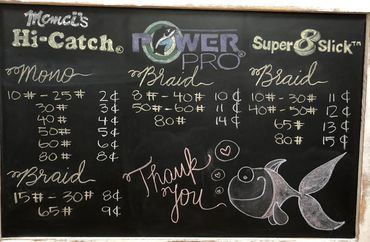 Momoi's
Hi-Catch®
Mono
10# - 25# 2¢
30# 3¢
40# 4¢
50# 5¢
60# 6¢
80# 8¢
Braid
15# - 30# 8¢
65# 9¢
POWER
PRO®
Braid
8# - 40# 10¢
50# - 60# 11¢
80# 14¢
Super 8 Slick™
Braid
10# - 30# 11¢
40# - 50# 12¢
65# 13¢
80# 15¢
Thank
You